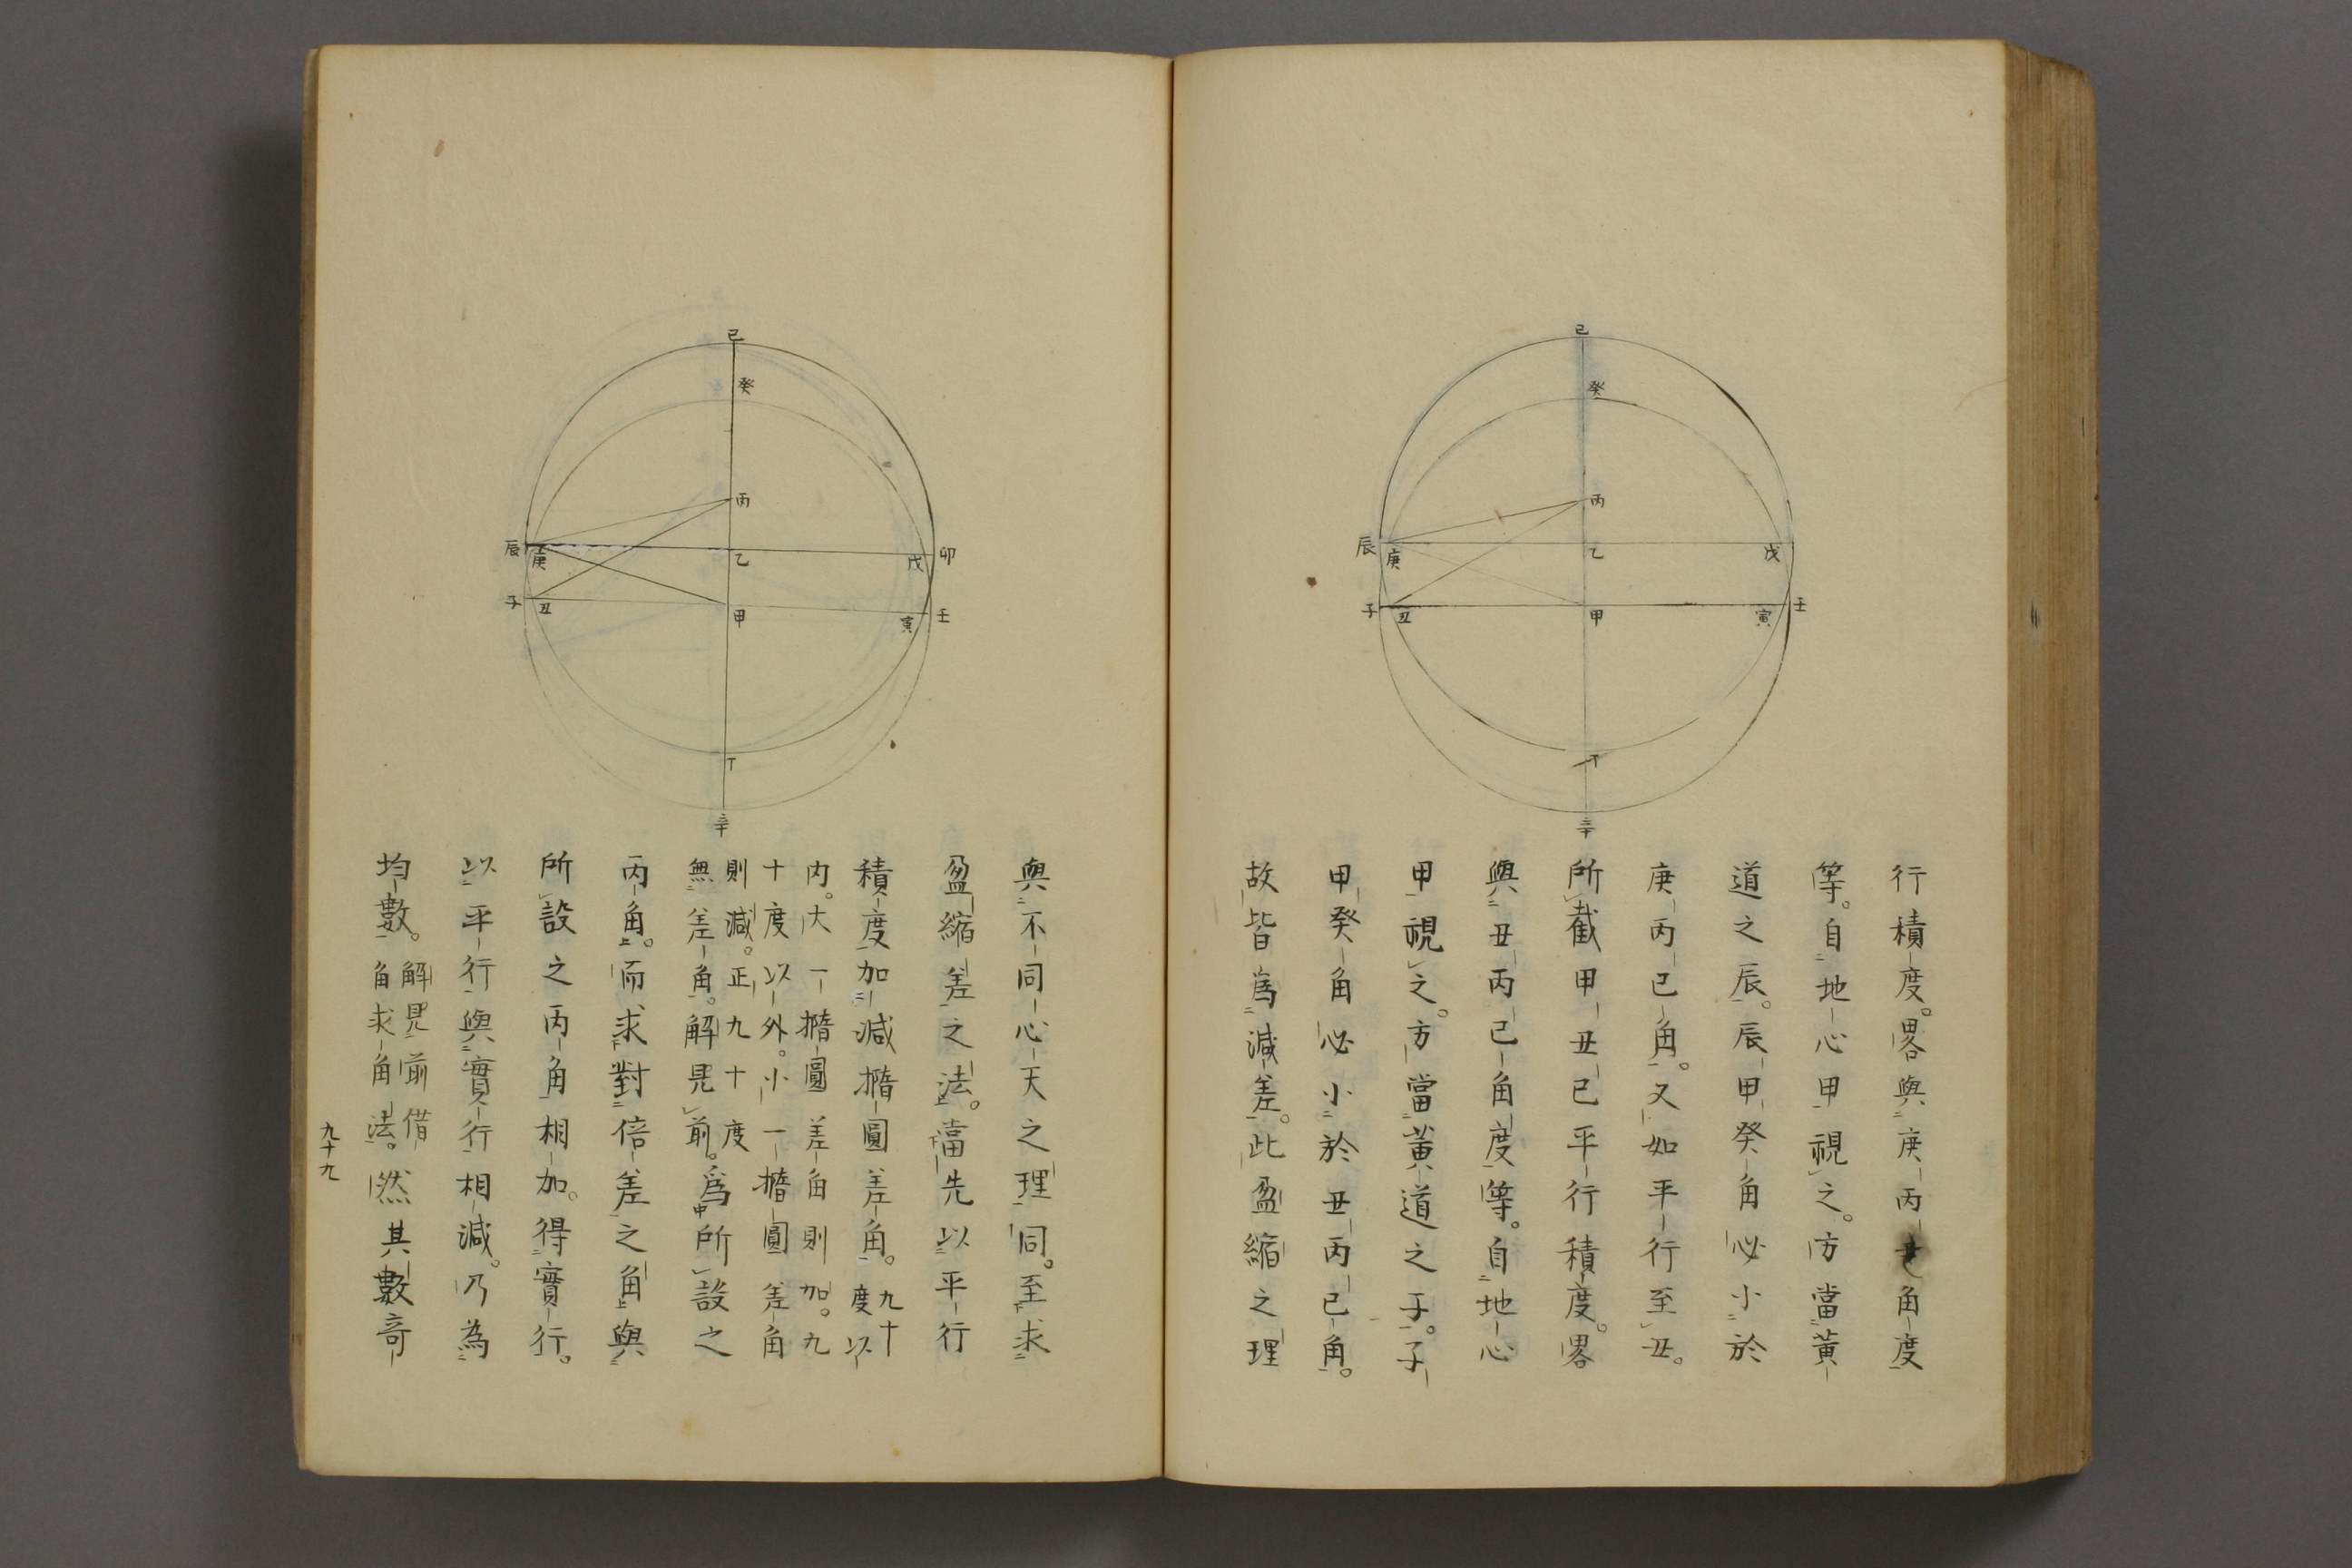 己
癸
丙
辰
庚
乙
戊
子
丑
甲
寅
壬
丁
辛
行積度。畧與庚丙己角度
等。自地心甲視之。方當黃
道之辰。辰甲癸角必小於
庚丙己角。又如平行至丑。
所截甲丑己平行積度。畧
與丑丙己角度等。自地心
甲視之。方當黃道之子。子
甲癸角必小於丑丙己角。
故皆為減差。此盈縮之理
己
癸
丙
辰
庚
乙
戊
卯
子
丑
甲
寅
壬
丁
辛
與不同心天之理同。至求
盈縮差之法。當先以平行
積度加減撱圓差角。九十
度以
內。大一撱圓差角則加。九
十度以外。小一撱圓差角
則減。正九十度
無差角。解見前。為所設之
丙角。而求對倍差之角與
所設之丙角相加。得實行。
以平行與實行相減。乃為
均數。解見前借
角求角法。然其數奇
九十九